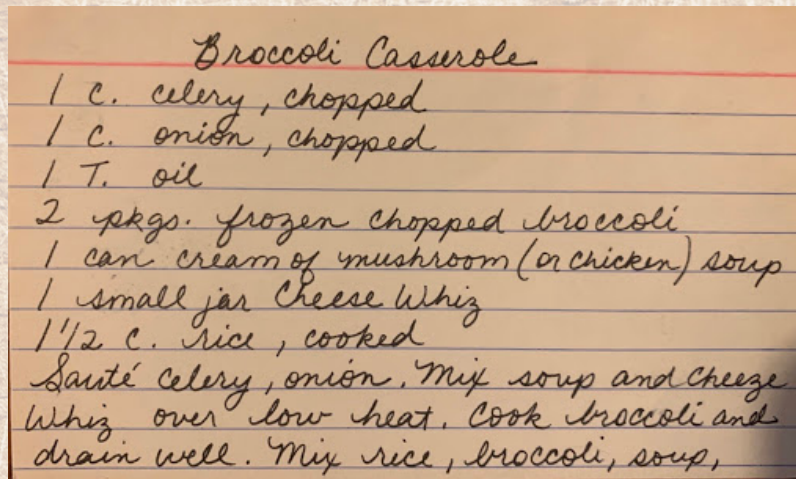 Broccoli Casserole
1 C. celery, chopped
1 C. onion, chopped
1 T. oil
2 pkgs. frozen chopped broccoli
1 can cream of mushroom (or chicken) soup
1 small jar Cheese Whiz
1 1/2 C. rice, cooked
Sauté celery, onion. Mix soup and Cheeze
Whiz over low heat. Cook broccoli and
drain well. Mix rice, broccoli, soup,